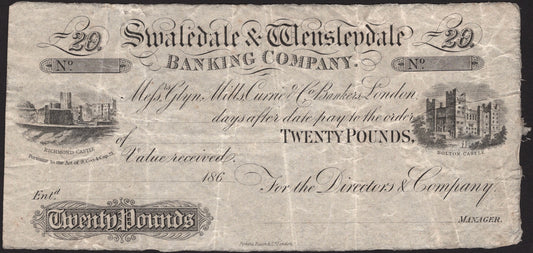 £20. Swaledale & Wensleydale £20.
No BANKING COMPANY. No
Messrs Glyn, Mills, Currie & Co Bankers, London.
days after date pay to the order
of TWENTY POUNDS,
RICHMOND CASTLE
BOLTON CASTLE
Pursuant to the Act of
Value received.
186 For the Directors & Company.
Entd
Twenty Pounds
MANAGER.
London